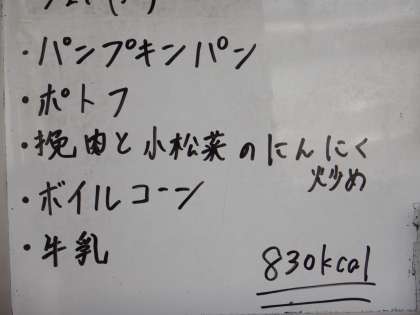 ・パンプキンパン
・ポトフ
・挽肉と小松菜のにんにく
炒め
・ボイルコーン
・牛乳
830kcal